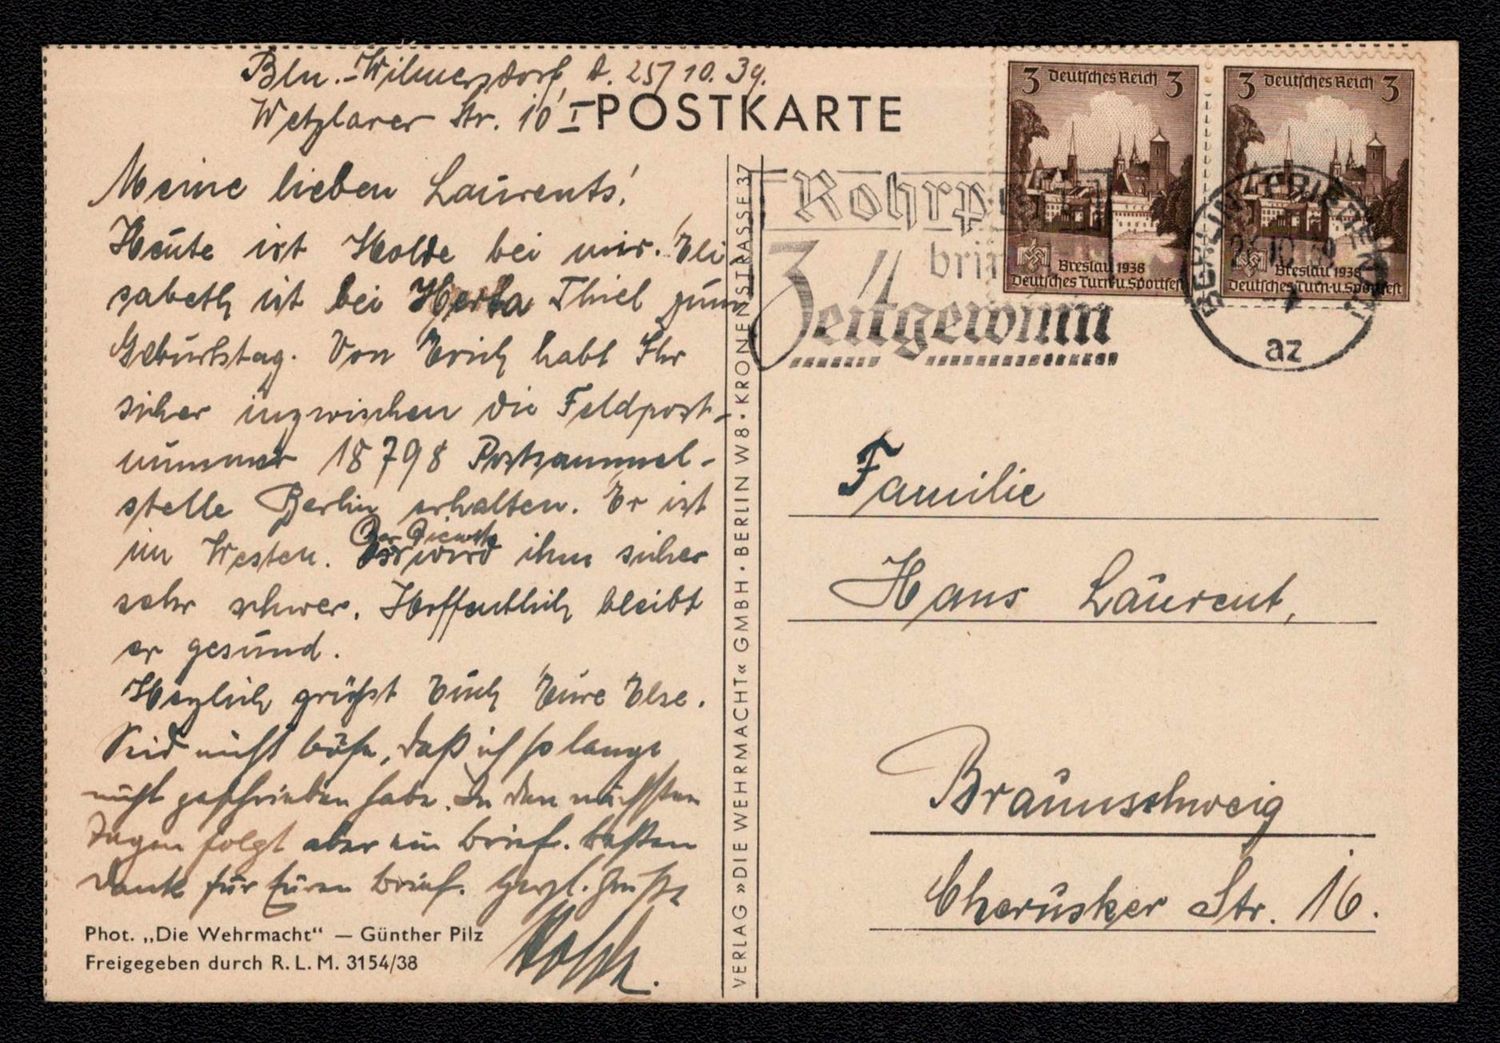 Bln.-Wilmersdorf, d. 25/10. 39.
Wetzlarer Str. 10 I
POSTKARTE
Meine lieben Laurents!
Heute ist Holde bei mir. Eli-
sabeth ist bei Herta Thiel zum
Geburtstag. Von Erich habt Ihr
sicher inzwischen die Feldpost-
nummer 18798 Postsammel-
stelle Berlin erhalten. Er ist
im Westen. Der Dienst wird ihm sicher
sehr schwer. Hoffentlich bleibt
er gesund.
Herzlich grüßt Euch Eure Else.
Seid nicht böse, daß ich so lange
nicht geschrieben habe. In den nächsten
Tagen folgt aber ein Brief. Besten
Dank für Euren Brief. Herzl. Grüße
Holde.
Phot. „Die Wehrmacht“ — Günther Pilz
Freigegeben durch R. L. M. 3154/38
VERLAG »DIE WEHRMACHT« GMBH · BERLIN W8 · KRONENSTRASSE 37
3 Deutsches Reich 3
Breslau 1938
Deutsches Turn-u.Sportfest
3 Deutsches Reich 3
Breslau 1938
Deutsches Turn-u.Sportfest
Rohrpost
bringt
Zeitgewinn
BERLIN
10.39
az
Familie
Hans Laurent,
Braunschweig
Cherusker Str. 16.